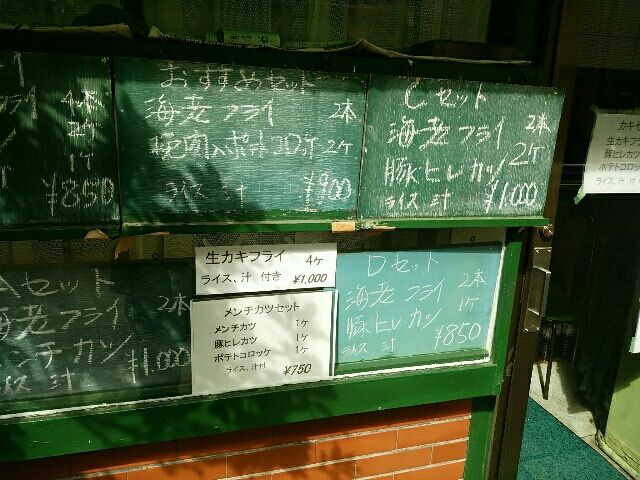 4本
2ケ
1ケ
¥850
おすすめセット
海老フライ 2本
焼肉入ポテトコロッケ 2ケ
ライス 汁 ¥900
Cセット
海老フライ 2本
豚ヒレカツ 2ケ
ライス 汁 ¥1,000
Aセット
海老フライ 2本
メンチカツ
ライス 汁 ¥1,000
生カキフライ 4ケ
ライス、汁 付き ¥1,000
メンチカツセット
メンチカツ 1ケ
豚ヒレカツ 1ケ
ポテトコロッケ 1ケ
ライス、汁付 ¥750
Dセット
海老フライ 2本
豚ヒレカツ 1ケ
ライス 汁 ¥850
カキ
生カキフラ
豚ヒレカツ
ポテトコロッケ
ライス、汁